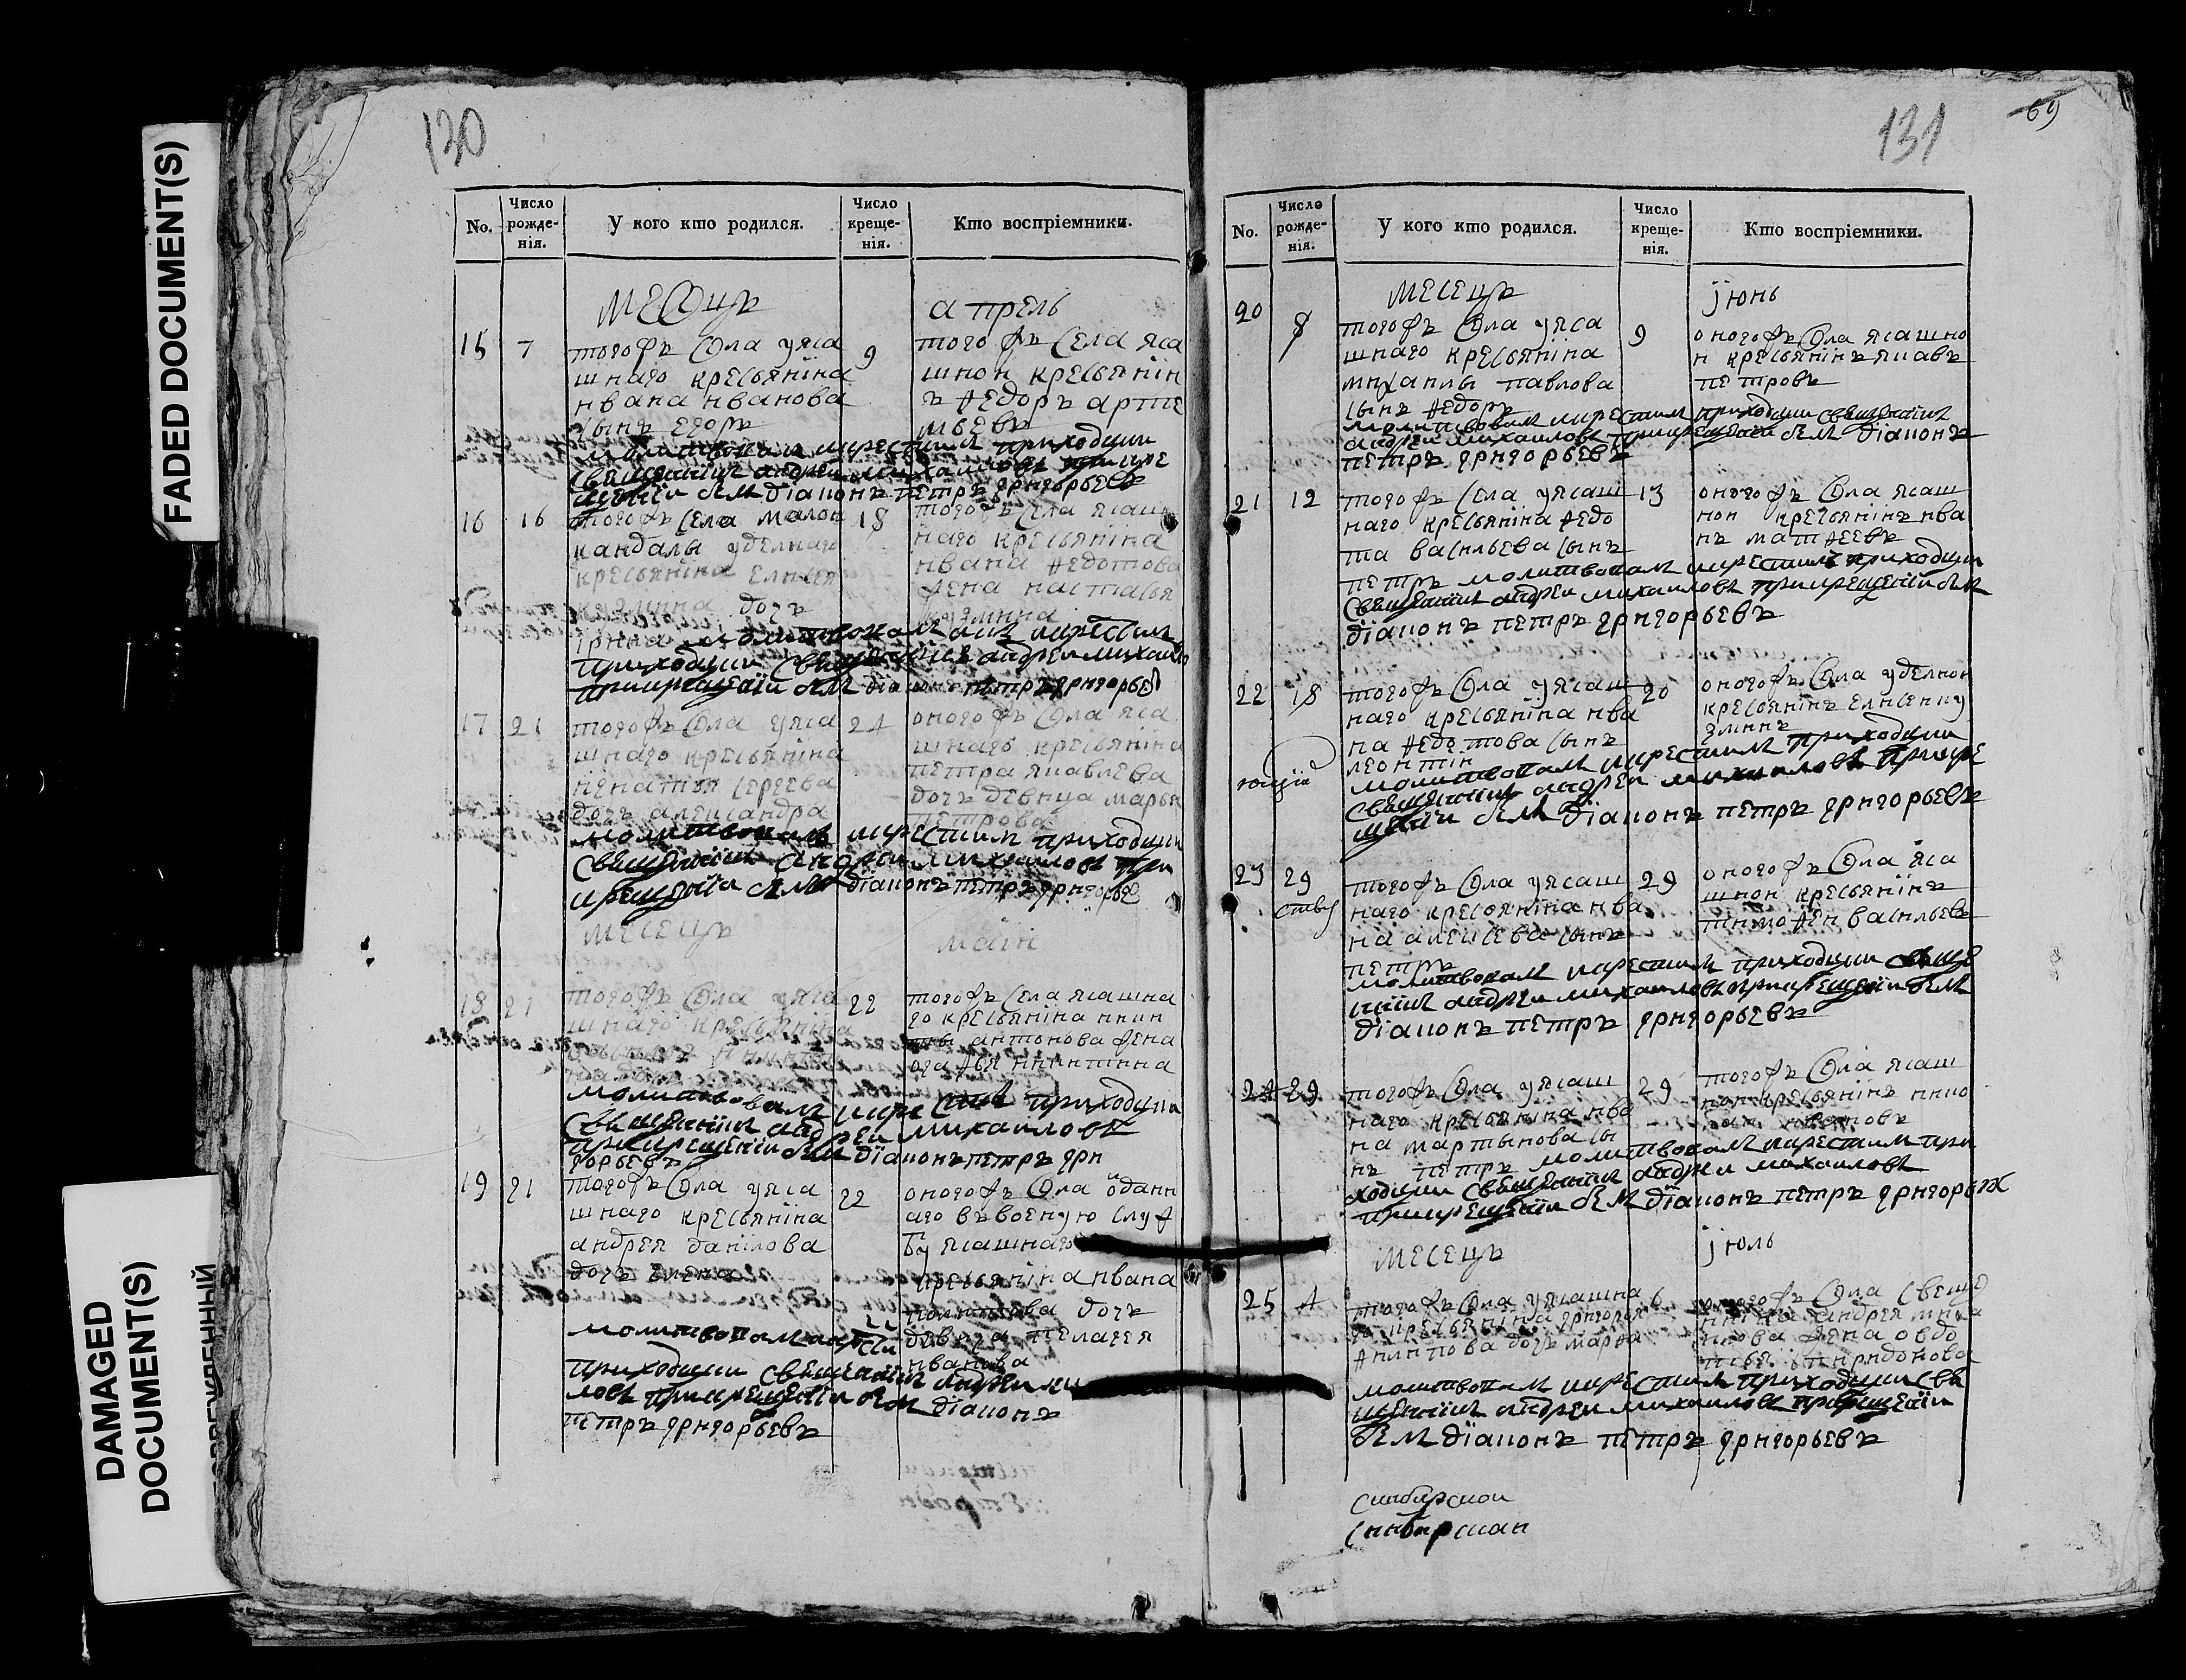 FADED DOCUMENT(S)
DAMAGED
DOCUMENT(S)
130
No.
Число рожденія.
У кого кто родился.
Число крещенія.
Кто воспріемники.
месецъ
апрель
15
7
тогожъ села у яса
шнаго кресьяніна
ивана иванова
сынъ егоръ
9
того жъ села яса
шнои кресьянін
ъ ѳедоръ арте
мьевъ
молитвовал и крестил приходцки
свещенник андреи михаиловъ при кре
щении был діаконъ петръ григорьевъ
16
16
тогожъ села малои
кандалы уделнаго
кресьяніна елисея
дочь
ірина
18
тогожъ села ясаш
наго кресьяніна
ивана ѳедотова
жена настасья
молитвовал и крестил
приходцки свещенник андреи михаило
при крещении был діаконъ петръ григорьев
17
21
тогожъ села у яса
шнаго кресьяніна
игнатия сергеева
дочь александра
24
оногожъ села яса
шнаго кресьяніна
петра яковлева
дочъ девица марья
петрова
молитвовал и крестил приходцки
свещенник андреи михаилов при
крещении был діаконъ петръ григорье
месецъ
маіи
18
21
тогожъ села у яса
шнаго кресьяніна
22
тогожъ села ясашна
го кресьяніна ники
ты антонова жена
агаѳья никитинна
молитвовал и крестил приходцки
свещенник андреи михаиловъ
при крещении был діаконъ петръ гри
горьевъ
19
21
тогожъ села у яса
шнаго кресьяніна
андрея данілова
дочь елена
22
оногожъ села оданн
аго въ военую служ
бу ясашнаго
кресьяніна ивана
дочъ
девица пелагея
иванова
молитвовал
приходцки свещенник андреи ми
ловъ при крещении был діаконъ
петръ григорьевъ
131
69
No.
Число рожденія.
У кого кто родился.
Число крещенія.
Кто воспріемники.
месецъ
јюнь
20
8
тогожъ села у яса
шнаго кресьяніна
михаилы павлова
сынъ ѳедоръ
9
оногожъ села ясашно
и кресьянінъ яковъ
петровъ
молитвовал и крестил приходцки свещенник
андреи михаиловъ при крещении был діаконъ
петръ григорьевъ
21
12
тогожъ села у ясаш
наго кресьяніна ѳедо
та васильева сынъ
петръ
13
оногожъ села ясаш
нои кресьянінъ ива
нъ матѳеевъ
молитвовал и крестил приходцки
свещенник андреи михаиловъ при крещении был
діаконъ петръ григорьевъ
22
18
тогожъ села у ясаш
наго кресьяніна ива
на ѳедотова сынъ
леонтіи
20
оногожъ села уделнои
кресьянінъ елисеи ку
зминъ
молитвовал и крестил приходцки
свещенник андреи михаиловъ при кре
щении был діаконъ петръ григорьевъ
23
29
тогожъ села у ясаш
наго кресьяніна ива
на алексева сынъ
петръ
29
оногожъ села яса
шнои кресьянінъ
тимоѳеи васильевъ
молитвовал и крестил приходцки свеще
нник андреи михаиловъ при крещении был
діаконъ петръ григорьевъ
24
29
тогожъ села у ясаш
наго кресьяніна ива
на мартынова сы
нъ петръ
29
тогожъ села ясаш
нои кресьянінъ нико
лаи ивановъ
молитвовал и крестил при
ходцки свещенник андреи михаиловъ
при крещении был діаконъ петръ григорьев
месецъ
јюль
25
4
тогожъ села у ясашна
го кресьяніна григорья
ѳилипова дочъ марѳа
6
оногожъ села свеще
нника андрея миха
илова жена овдо
тья спиридонова
молитвовал и крестил приходцки све
щенник андреи михаиловъ при крещении
был діаконъ петръ григорьевъ
синбирскои
синбирскаи